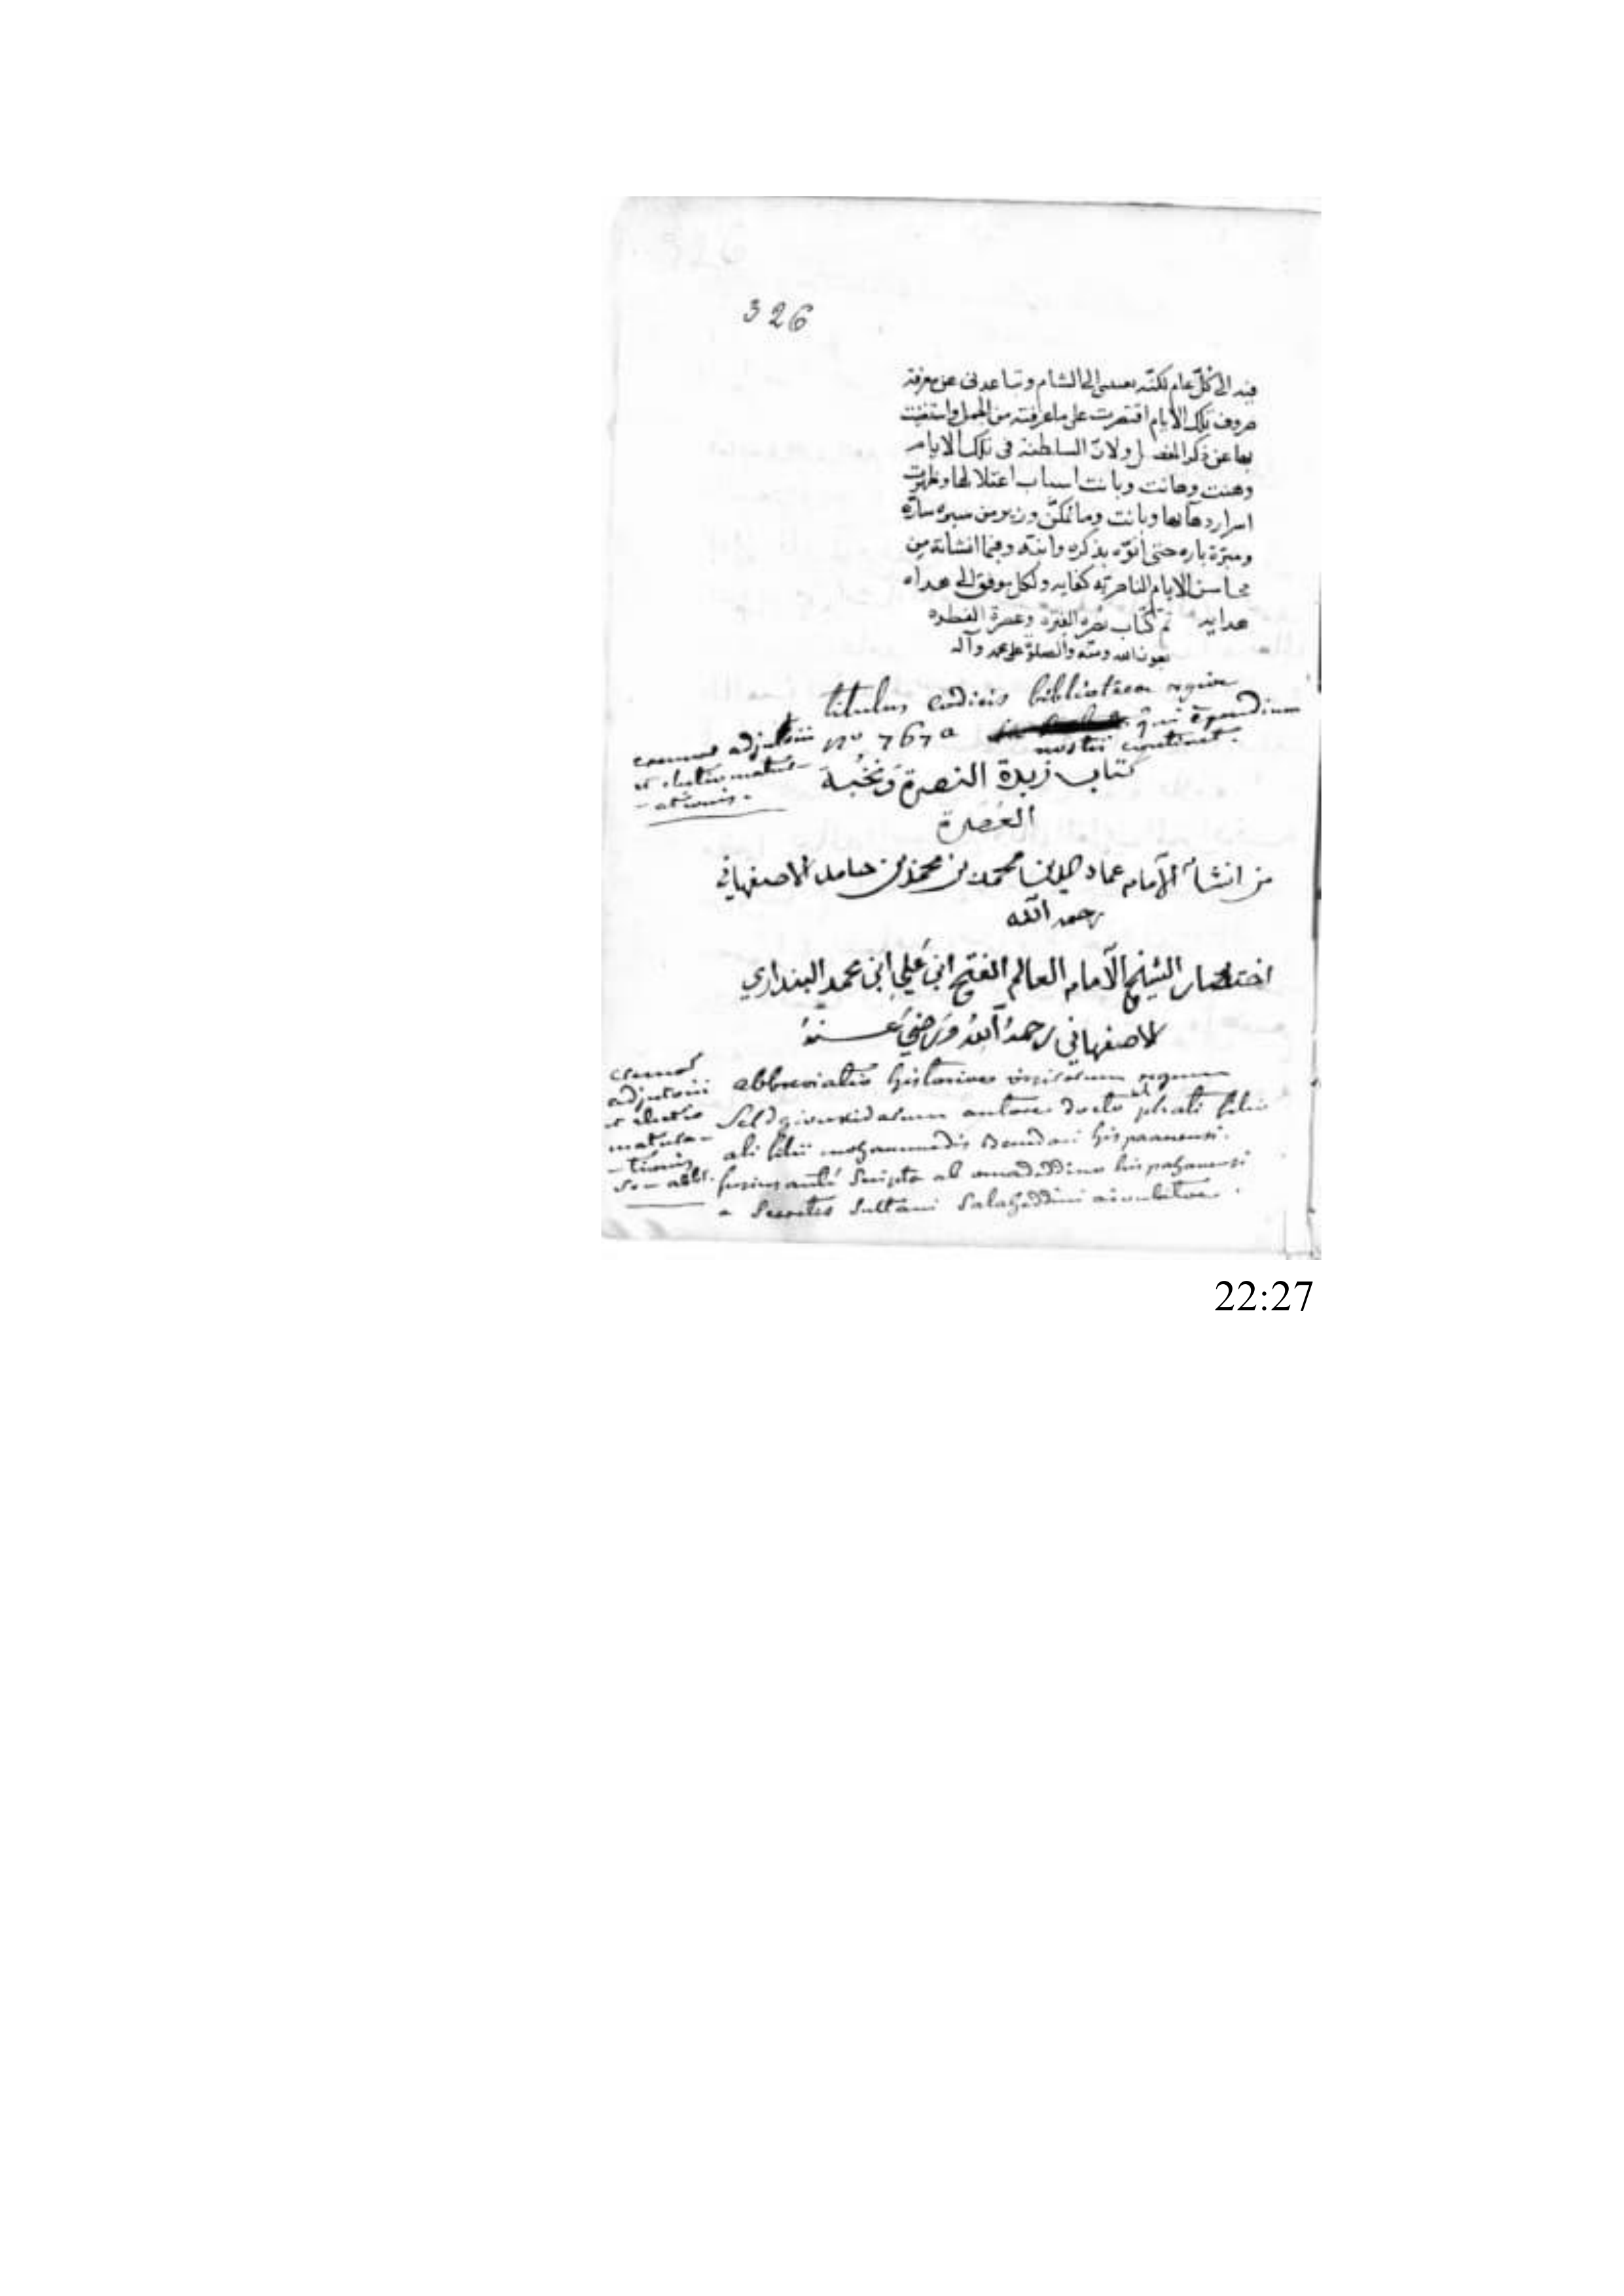 326
فيه الى كلّ عام لكنّه بعدى الى الشام وتباعدنى عن معرفة
صروف تلك الايام اقتصرت على ماعرفته من المجمل واستغنيت
بها عن ذكر المفصل ولانّ السلطنة فى تلك الايام
وهنت وهانت وبانت اسباب اعتلالها وظهرت
اسرار وبانت وما تمكّن وزير من سيره سارّه
ومبرّة بارّه حتى انوّه بذكره وانبّه وفيما انشاته من
محاسن الايام الناصريّه كفايه ولكل موفق الى هداه
هدايه تمّ كتاب نصره الفتره وعصرة الفطره
بعون الله ومنّه والصلوة على محمد وآله
titulus codicis bibliothecae regiae
n° 767 a qui cpendium
nostri continet.
cremor adjutorii
et electio matur-
-ationis.
كتاب زبدة النصرة وَنُخْبة
العُصَرة
من انشاء الامام عماد الدين محمد بن محمد بن حامد الاصفهاني
رحمه الله
اختصار الشيخ الامام العالم الفتح ابن عَلي ابن محمد البنداري
الاصفهاني رحمهُ اللهُ وَرَضيَ عَنهُ
cremor
adjutorii
et electio
matura-
-tionis
abbreviatio historiae visirorum regum
Seldgioukidarum autore docto phati filio
ali filii mohammedis Bendari hispaanensi.
fusius ante scripta ab omadeddino hispahanensi
a secretis sultani Salaheddini aioubitae.
22:27